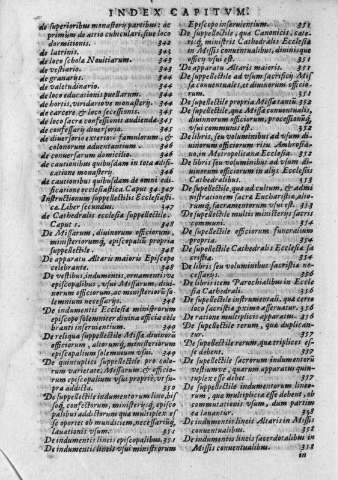 INDEX CAPITVM.
de superioribus monasterij partibus: ac
primum de atrio cubiculari, siue loco
dormitionis. 342
de latrinis. 343
de loco schola Nouitiarum. 343
de vestiario. 343
de granarijs. 343
de valetudinario. 344
de loco educationis puellarum. 344
de hortis, viridario ve monasterij. 344
de carcere, & loco secessionis. 345
de loco sacra confessionis audienda. 345
de confessarij diuersorio. 345
de diuersorio externo famulorum, &
colonorum aduentantium. 346
de conuersarum domicilio. 346
de cautionibus quibusdam in tota aedificatione
monasterij 346
de cautionibus quibusdam de omni aedificatione
ecclesiastica. Caput 34. 347
Instructionum suppellectilis Ecclesiastica.
Liber secundus 347
de Cathedralis ecclesia suppellectile.
Caput 1. 348
De Missarum, diuinorum officiorum,
ministeriorumq́; episcopali propria
suppellectile. 348
De apparatu Altaris maioris Episcopo
celebrante. 348
De vestibus, indumentis, ornamentis ve
episcopalibus, vsui Missarum, diuinorum
officiorum, ac ministeriorum solemnium
necessarijs. 348
De indumentis Ecclesiae ministrorum
episcopo solemniter diuina officia celebranti
inseruientium. 349
De reliqua suppellectile Missae diuinorũ
officiorum, aliorumq́; ministeriorum
episcopalium solemnium vsui. 349
De quintuplici suppellectile pro colorum
varietate, Missarum & officiorum
episcopalium vsu proprie, vt supra
addicta. 350
De suppellectile indumentorum lino, bisso
q́; confectorum, ministerijsq́; episcopalibus
addictorum qua multiplex ad
se oportet ob mundiciem, necessariúq́;
lauationis vsum. 351
De indumentis lineis episcopalibus. 351
De indumentis lineis vsui ministrorum
Episcopo inseruientium. 351
De suppellectile, qua Canonicis, caterisq́;
ministris Cathedralis Ecclesia
in Missis conuentualibus, diuinisque
officijs vsui est. 351
De apparatu Altaris maioris. 351
De suppellectile ad vsum sacrificij Missa
conuentualis, et diuinorum officiorum.
351
De suppellectile propria Missa cantu. 352
De suppellectile, qua Missa conuentualis,
diuinorum officiorum, processionũq́;
vsui communis est. 352
De libris, seu voluminibus ad vsum diuinorum
officiorum ritu Ambrosiano,
in Metropolitana Ecclesia. 352
De libris siue voluminibus ad vsum diuinorum
officiorum in alijs Ecclesijs
Cathedralibus. 353
De suppellectile, qua ad cultum, & administrationem
sacra Eucharistia, aliorumq́;
sacramentorum vsui est. 353
De suppellectile multis ministerijs sacris
communi. 354
De suppellectile officiorum funeralium
propria. 354
De suppellectile Cathedralis Ecclesia sacristia.
354
De libris seu voluminibus sacristia necessarijs.
356
De libris item Parochialibus in Ecclesia
Cathedrali. 356
De suppellectile instrumentali, qua cereo
loco sacristia proxime asseruatur. 356
De ratione multiplicis apparatus. 356
De suppellectile rerum, qua duplicantur.
357
De suppellectile rerum, qua triplices esse
debent. 357
De suppellectile sacrorum indumentorũ
vestiumve, quarum apparatus quintuplex
esse debet 357
De suppellectile indumentorum linearum,
qua multiplicia esse debent, ob
commutationis vsum, dum partim
eluantur. 358
De indumentis lineis Altaris in Missis
conuentualibus. 358
De indumentis lineis sacerdotalibus in
Missis conuentualibus. 358
in